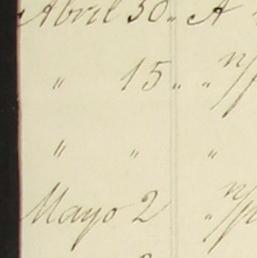 Abril 30 " A
" 15 " " n/
" " "
Mayo 2 " n/p